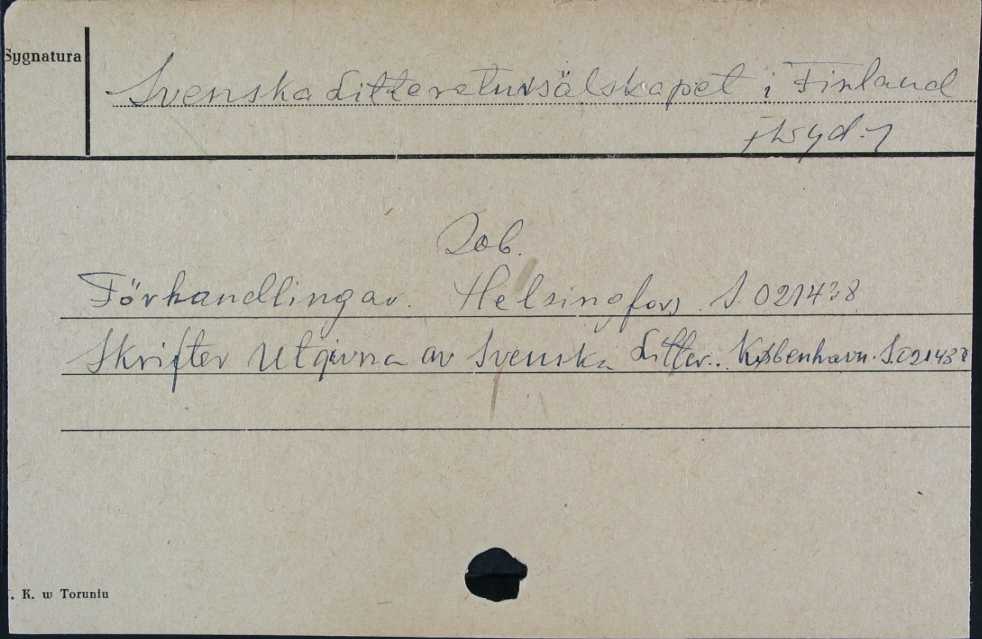 Sygnatura
Svenska Litteratursälskapet i Finland
[wyd.]
Zob.
Förhandlingar. Helsingfors S.021438
Skrifter Utgivna av Svenska Litter.. København. S.021438
. K. w Toruniu